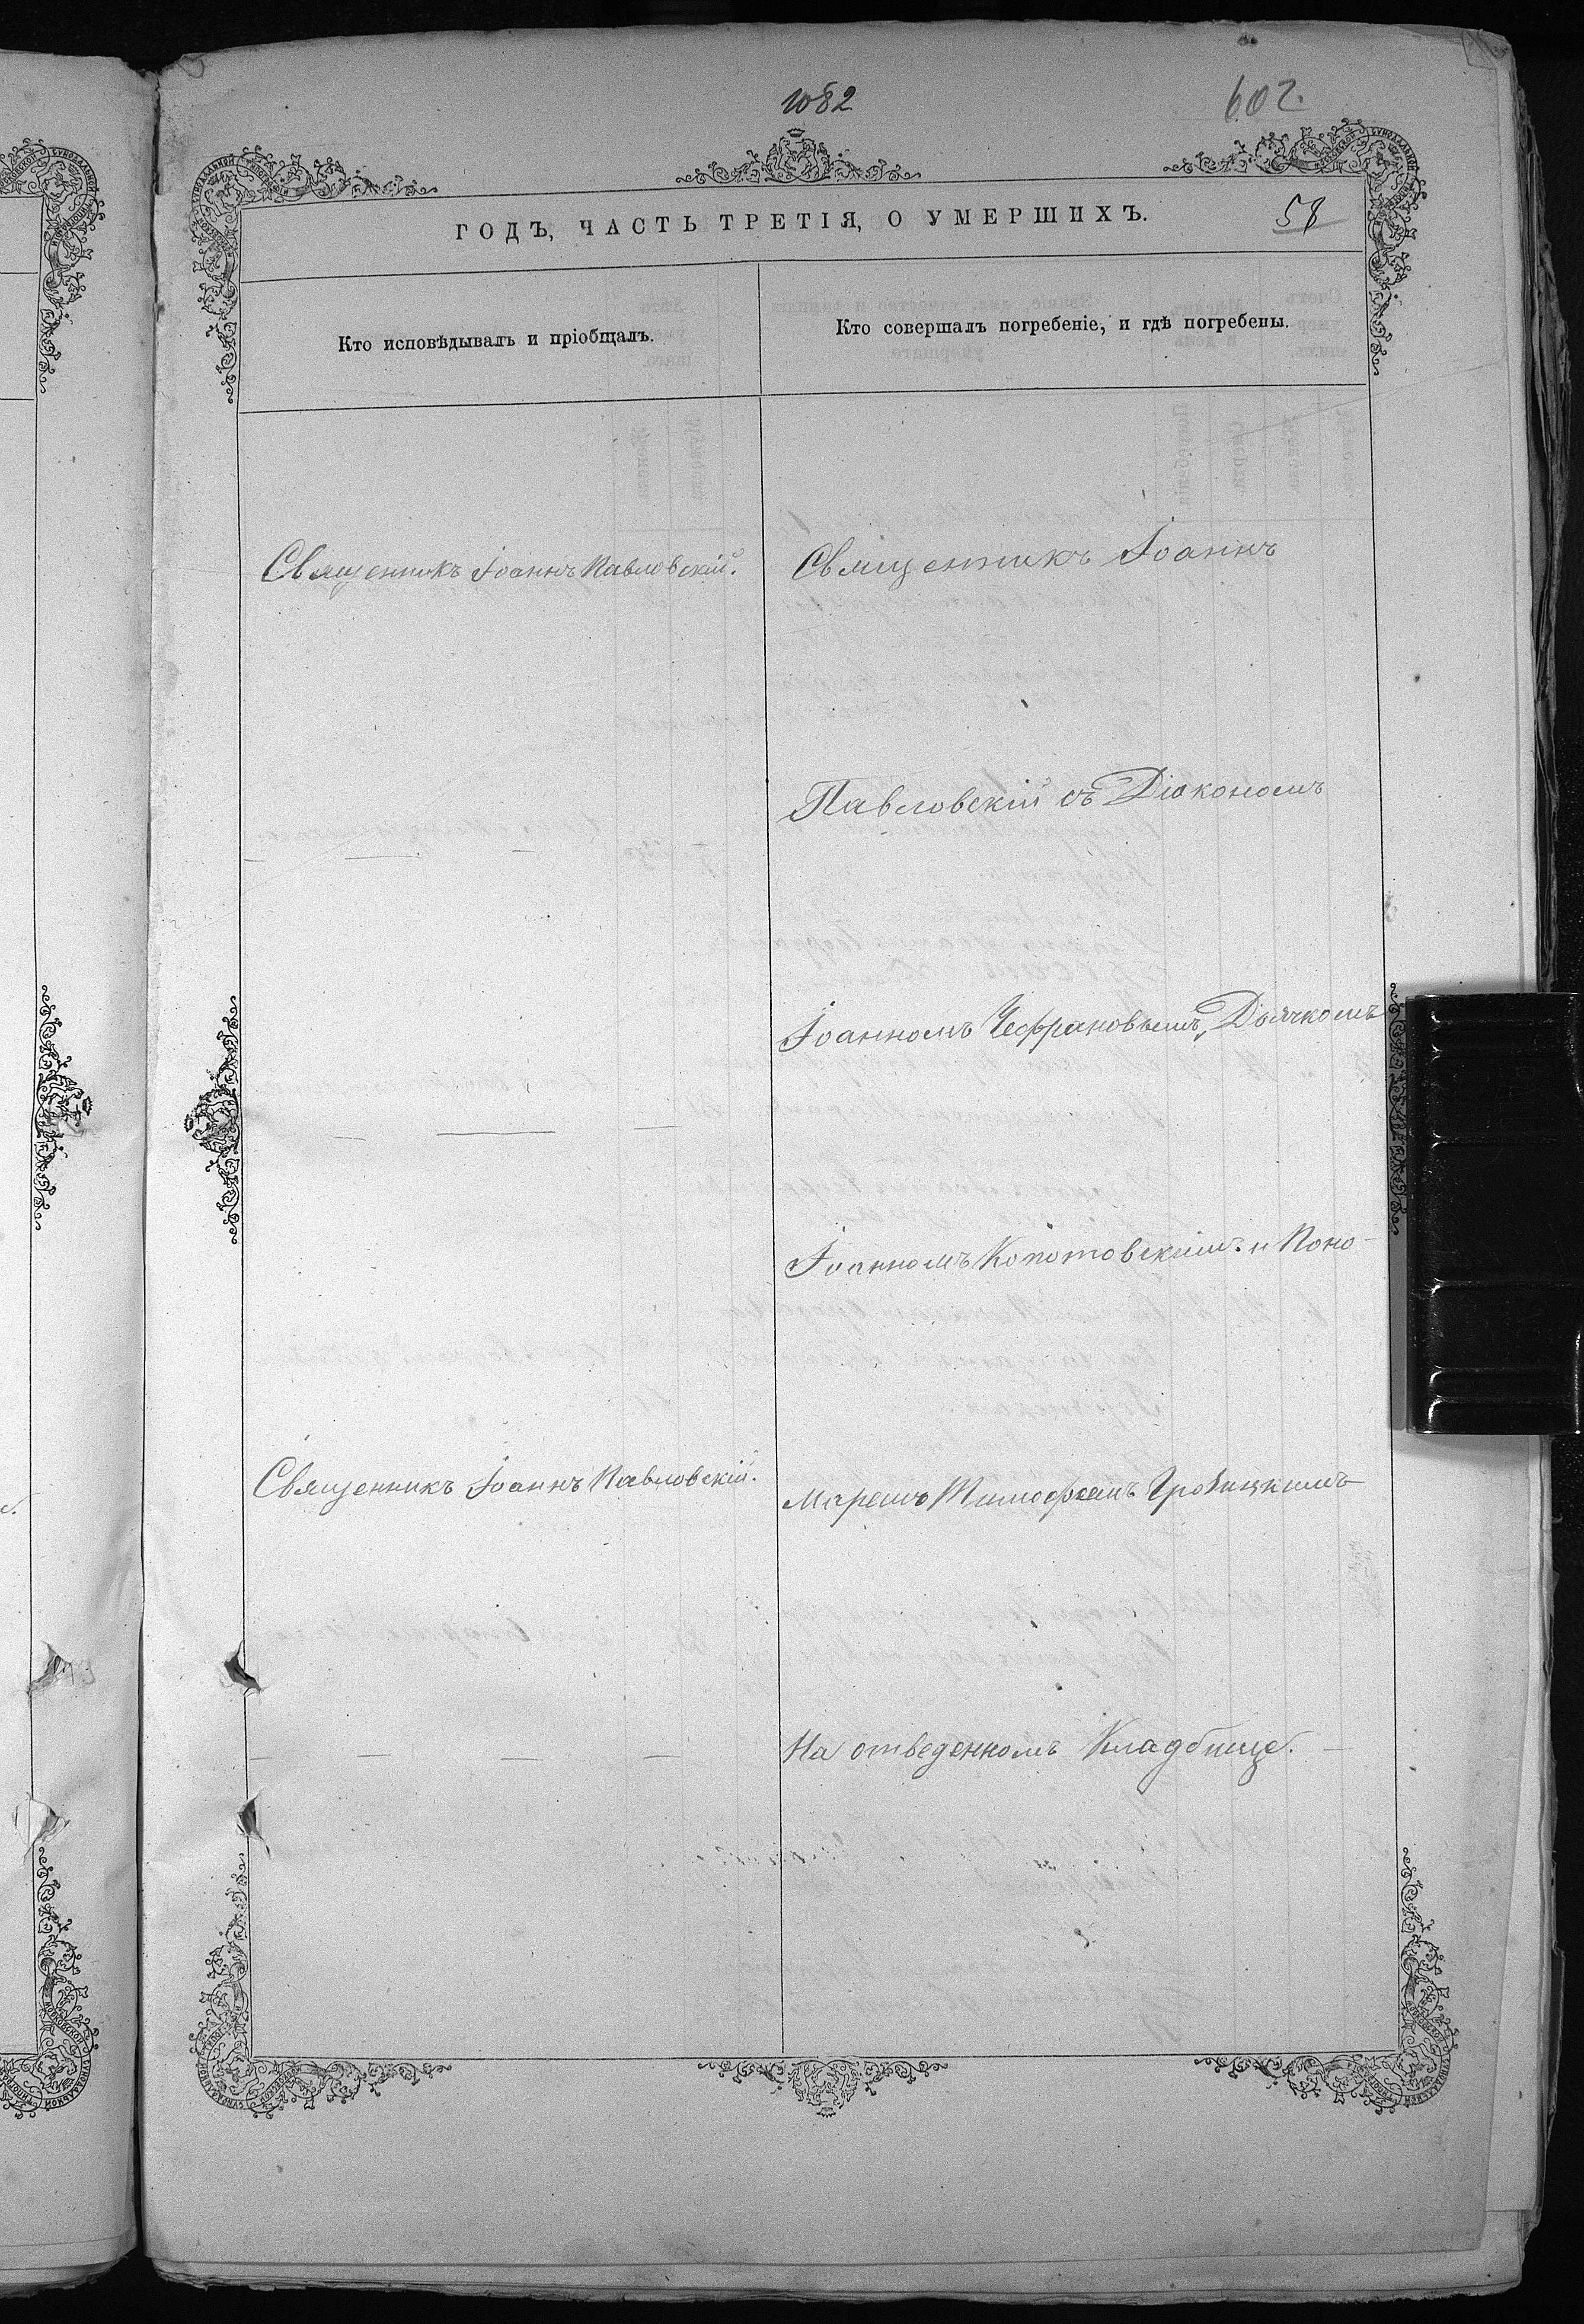 1082
602.
ГОДЪ, ЧАСТЬ ТРЕТІЯ, О УМЕРШИХЪ.
58
Кто исповѣдывалъ и пріобщалъ.
Кто совершалъ погребеніе, и гдѣ погребены.
Священникъ Іоаннъ Павловскій.
Священникъ Іоаннъ
Павловскій съ Діакономъ
Іоанномъ Чефрановымъ, Дьячкомъ
Іоанномъ Копотовскимъ и Поно-
Священникъ Іоаннъ Павловскій.
маремъ Тимофеемъ
На отведенномъ Кладбище.